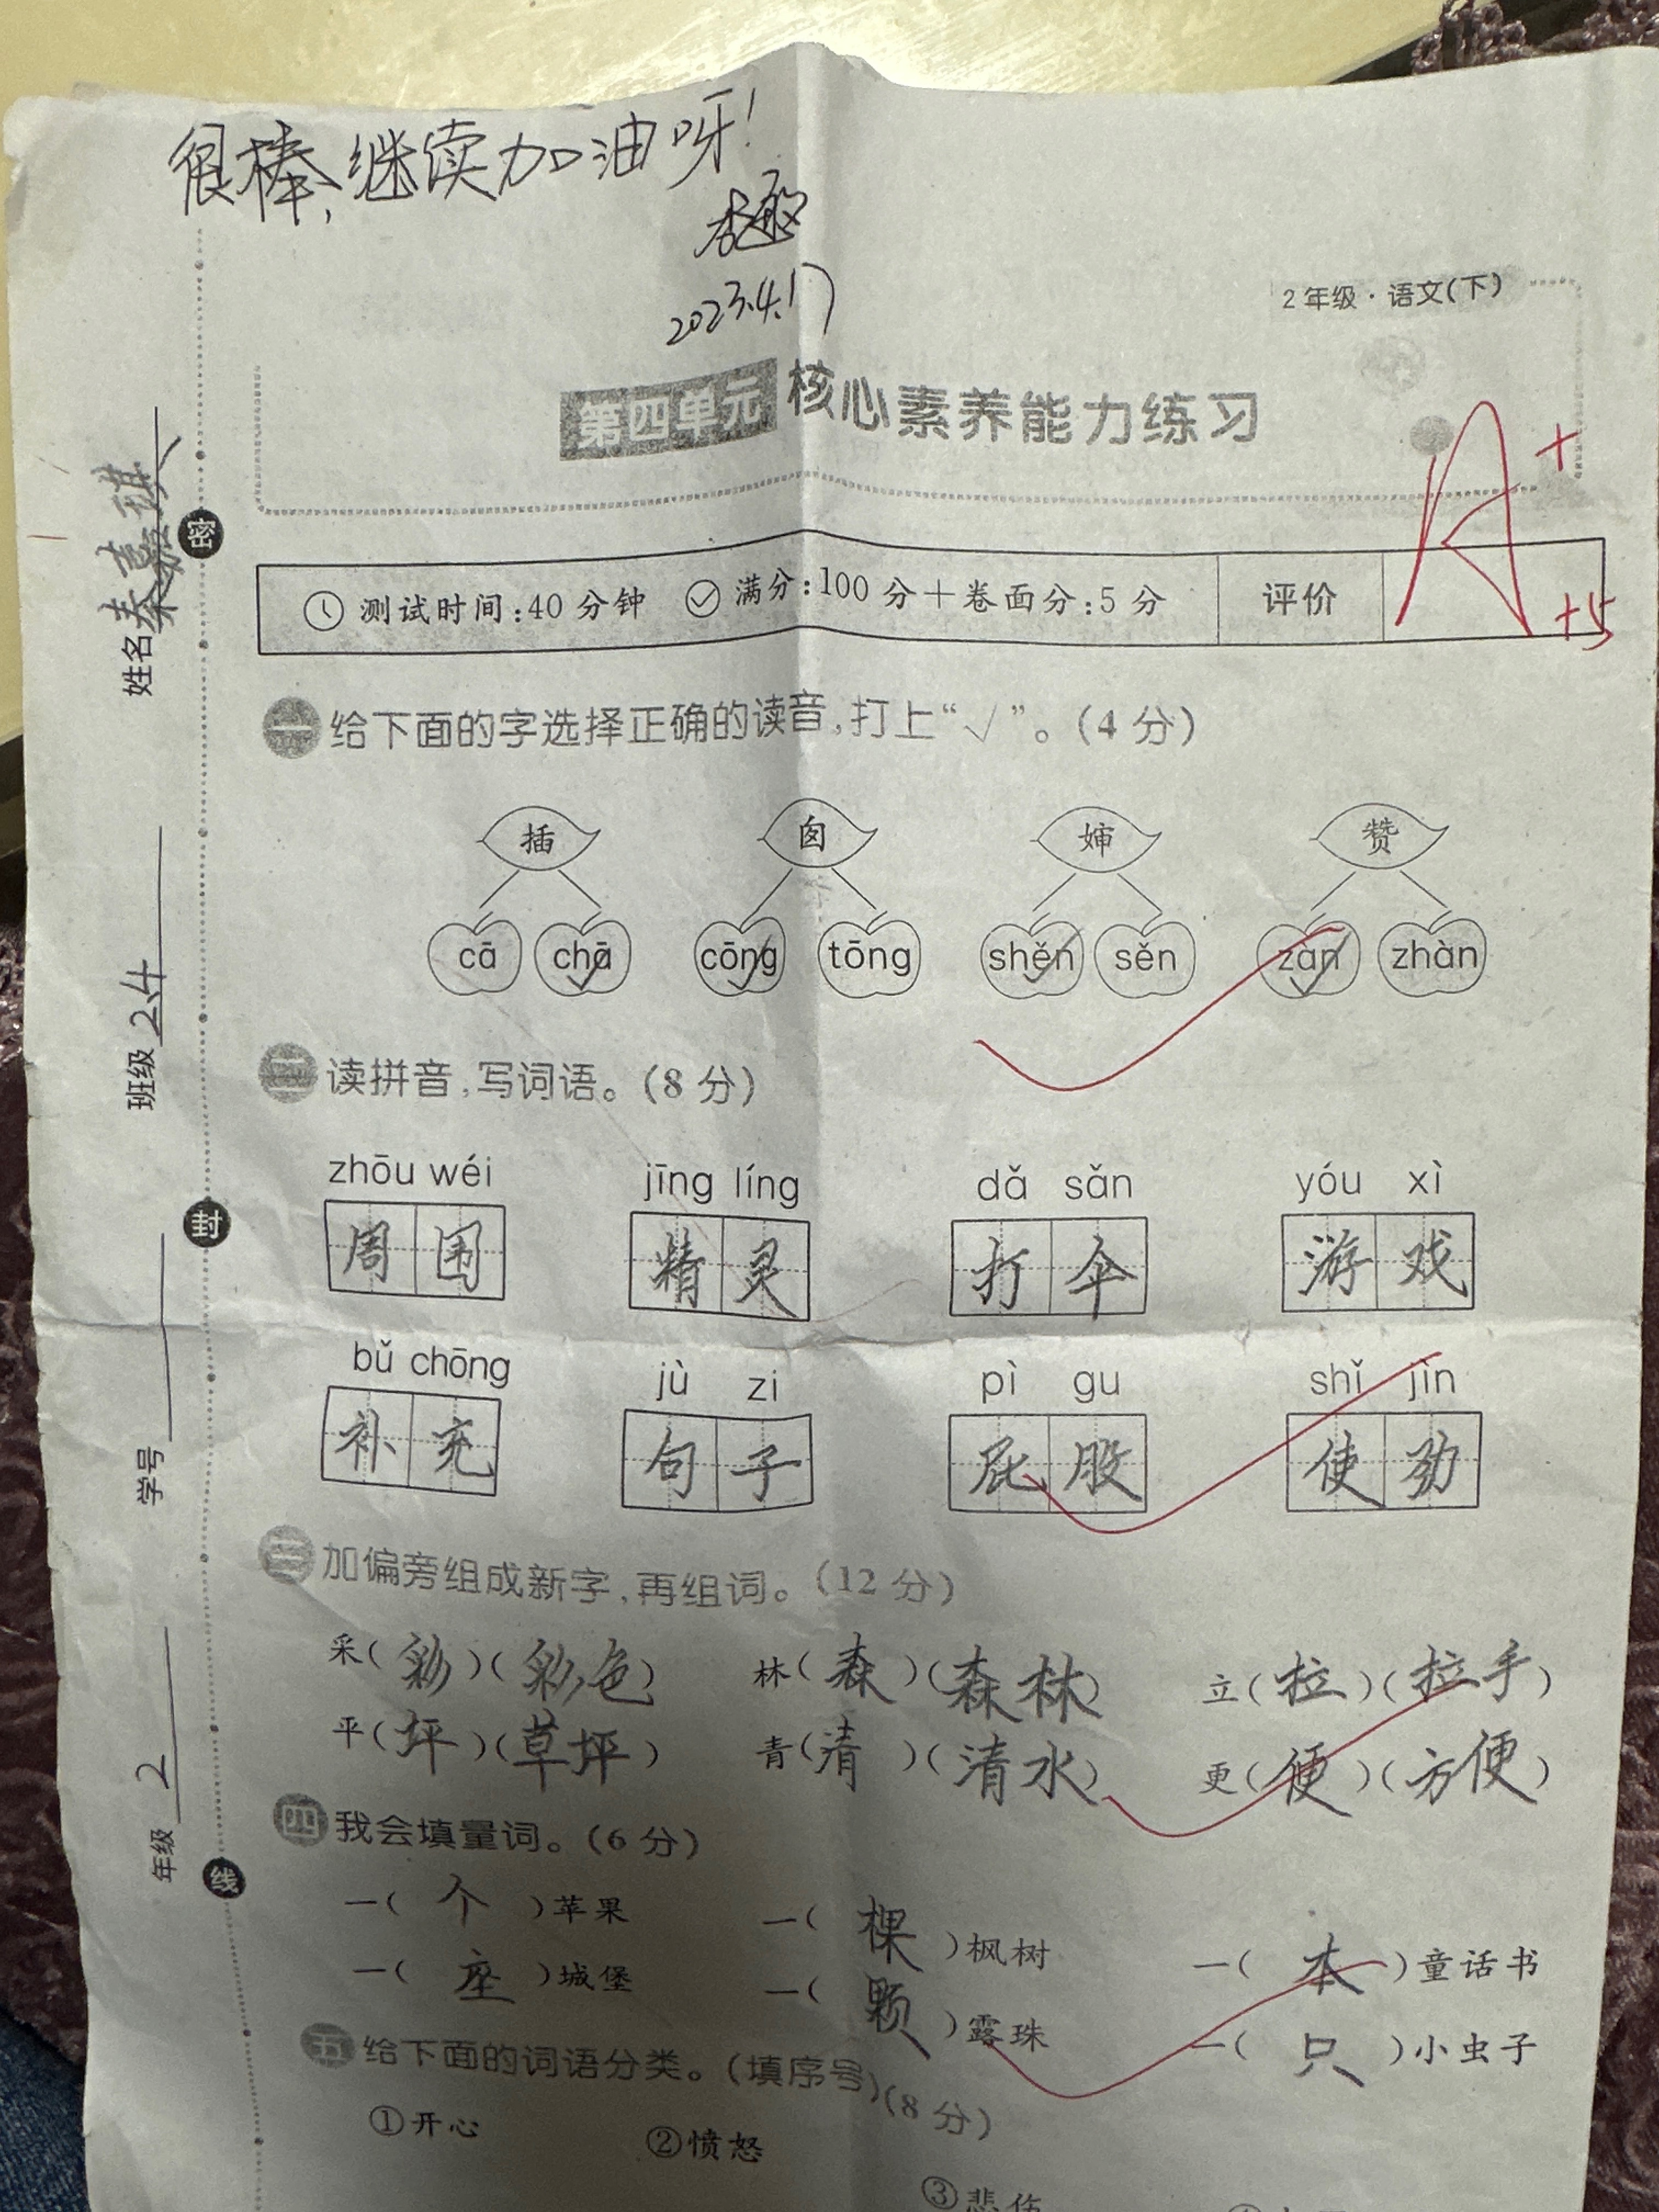 很棒,继续加油呀!
2023.4.17
2年级·语文(下)
第四单元 核心素养能力练习
A+
+5
测试时间:40分钟 满分:100分+卷面分:5分 评价
姓名 秦嘉琪
班级 2.4
学号
年级 2
密
封
线
一 给下面的字选择正确的读音,打上“√”。(4分)
插 囱 婶 赞
cā chā cōng tōng shěn sěn zàn zhàn
二 读拼音,写词语。(8分)
zhōu wéi jīng líng dǎ sǎn yóu xì
周围 精灵 打伞 游戏
bǔ chōng jù zi pì gu shǐ jìn
补充 句子 屁股 使劲
三 加偏旁组成新字,再组词。(12分)
采(彩)(彩色) 林(森)(森林) 立(拉)(拉手)
平(坪)(草坪) 青(清)(清水) 更(便)(方便)
四 我会填量词。(6分)
一(个)苹果 一(棵)枫树 一(本)童话书
一(座)城堡 一(颗)露珠 一(只)小虫子
五 给下面的词语分类。(填序号)(8分)
①开心 ②愤怒 ③悲伤